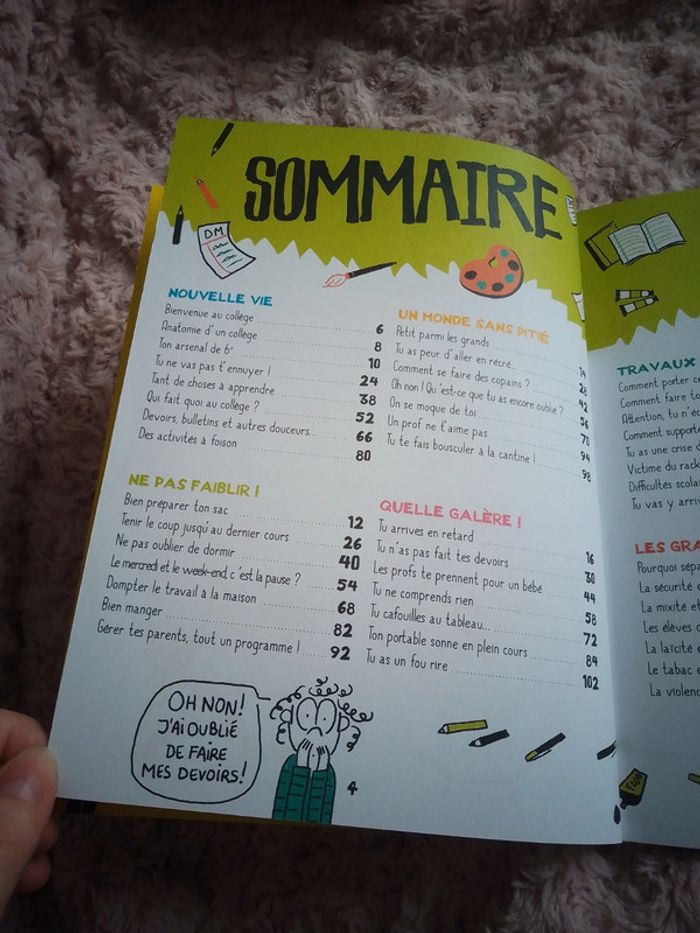 SOMMAIRE
DM
NOUVELLE VIE
Bienvenue au collège 6
Anatomie d'un collège 8
Ton arsenal de 6e 10
Tu ne vas pas t'ennuyer ! 24
Tant de choses à apprendre 38
Qui fait quoi au collège ? 52
Devoirs, bulletins et autres douceurs... 66
Des activités à foison 80
NE PAS FAIBLIR !
Bien préparer ton sac 12
Tenir le coup jusqu'au dernier cours 26
Ne pas oublier de dormir 40
Le mercredi et le week-end, c'est la pause ? 54
Dompter le travail à la maison 68
Bien manger 82
Gérer tes parents, tout un programme ! 92
UN MONDE SANS PITIÉ
Petit parmi les grands 14
Tu as peur d'aller en récré... 28
Comment se faire des copains ? 42
Oh non ! Qu'est-ce que tu as encore oublié ? 56
On se moque de toi 70
Un prof ne t'aime pas 94
Tu te fais bousculer à la cantine ! 98
QUELLE GALÈRE !
Tu arrives en retard 16
Tu n'as pas fait tes devoirs 30
Les profs te prennent pour un bébé 44
Tu ne comprends rien 58
Tu cafouilles au tableau... 72
Ton portable sonne en plein cours 84
Tu as un fou rire 102
OH NON!
J'AI OUBLIÉ
DE FAIRE
MES DEVOIRS!
4
TRAVAUX
Comment porter
Comment faire
Attention, tu n'
Comment
Tu as une crise
Victime du
Difficultés
Tu vas y
LES
Pourquoi
La sécurité
La mixité et
Les élèves
La laïcité
Le tabac
La